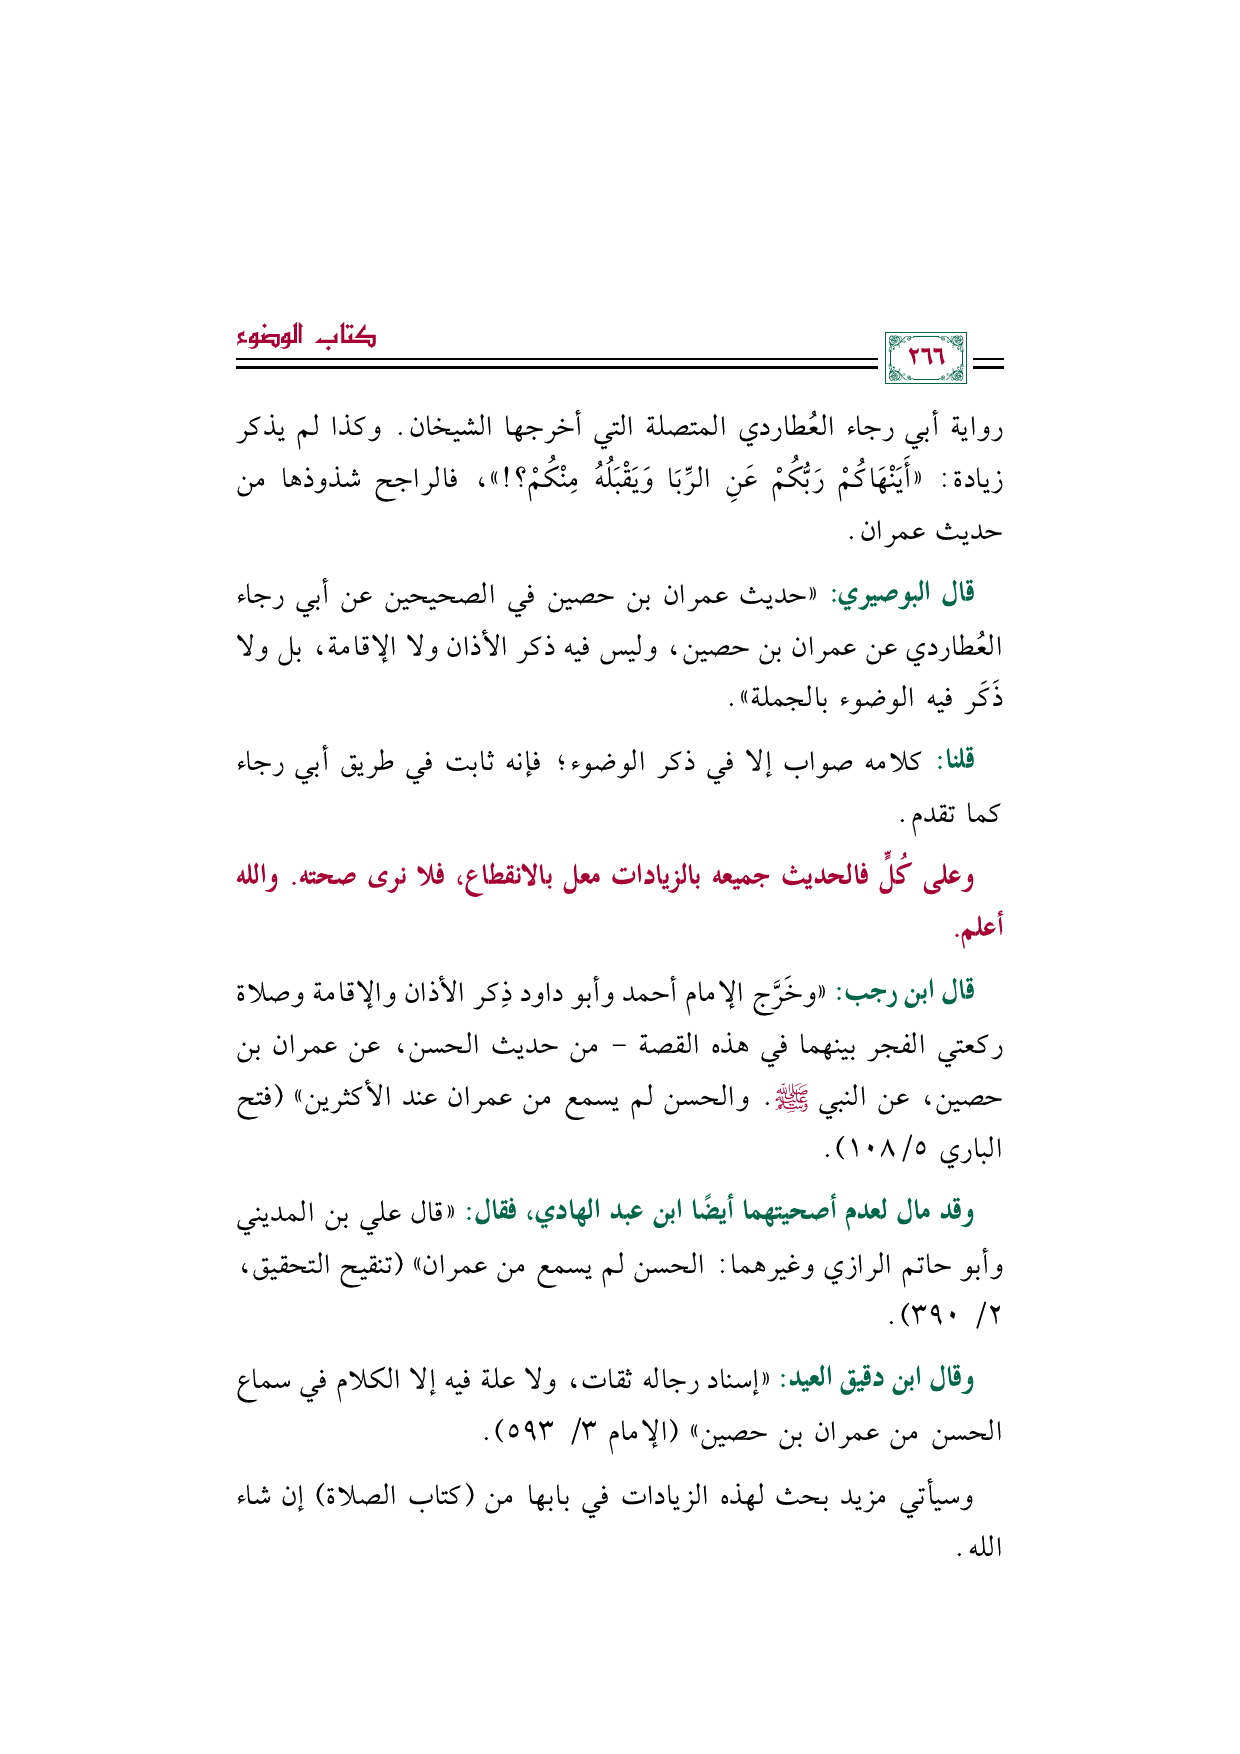 كتاب الوضوء
٢٦٦
رواية أبي رجاء العُطاردي المتصلة التي أخرجها الشيخان. وكذا لم يذكر
زيادة: «أَيَنْهَاكُمْ رَبُّكُمْ عَنِ الرِّبَا وَيَقْبَلُهُ مِنْكُمْ؟!»، فالراجح شذوذها من
حديث عمران.
قال البوصيري: «حديث عمران بن حصين في الصحيحين عن أبي رجاء
العُطاردي عن عمران بن حصين، وليس فيه ذكر الأذان ولا الإقامة، بل ولا
ذَكَر فيه الوضوء بالجملة».
قلنا: كلامه صواب إلا في ذكر الوضوء؛ فإنه ثابت في طريق أبي رجاء
كما تقدم.
وعلى كُلٍّ فالحديث جميعه بالزيادات معل بالانقطاع، فلا نرى صحته. والله
أعلم.
قال ابن رجب: «وخَرَّج الإمام أحمد وأبو داود ذِكر الأذان والإقامة وصلاة
ركعتي الفجر بينهما في هذه القصة - من حديث الحسن، عن عمران بن
حصين، عن النبي ﷺ. والحسن لم يسمع من عمران عند الأكثرين» (فتح
الباري ٥/ ١٠٨).
وقد مال لعدم أصحيتهما أيضًا ابن عبد الهادي، فقال: «قال علي بن المديني
وأبو حاتم الرازي وغيرهما: الحسن لم يسمع من عمران» (تنقيح التحقيق،
٢/ ٣٩٠).
وقال ابن دقيق العيد: «إسناد رجاله ثقات، ولا علة فيه إلا الكلام في سماع
الحسن من عمران بن حصين» (الإمام ٣/ ٥٩٣).
وسيأتي مزيد بحث لهذه الزيادات في بابها من (كتاب الصلاة) إن شاء
الله.